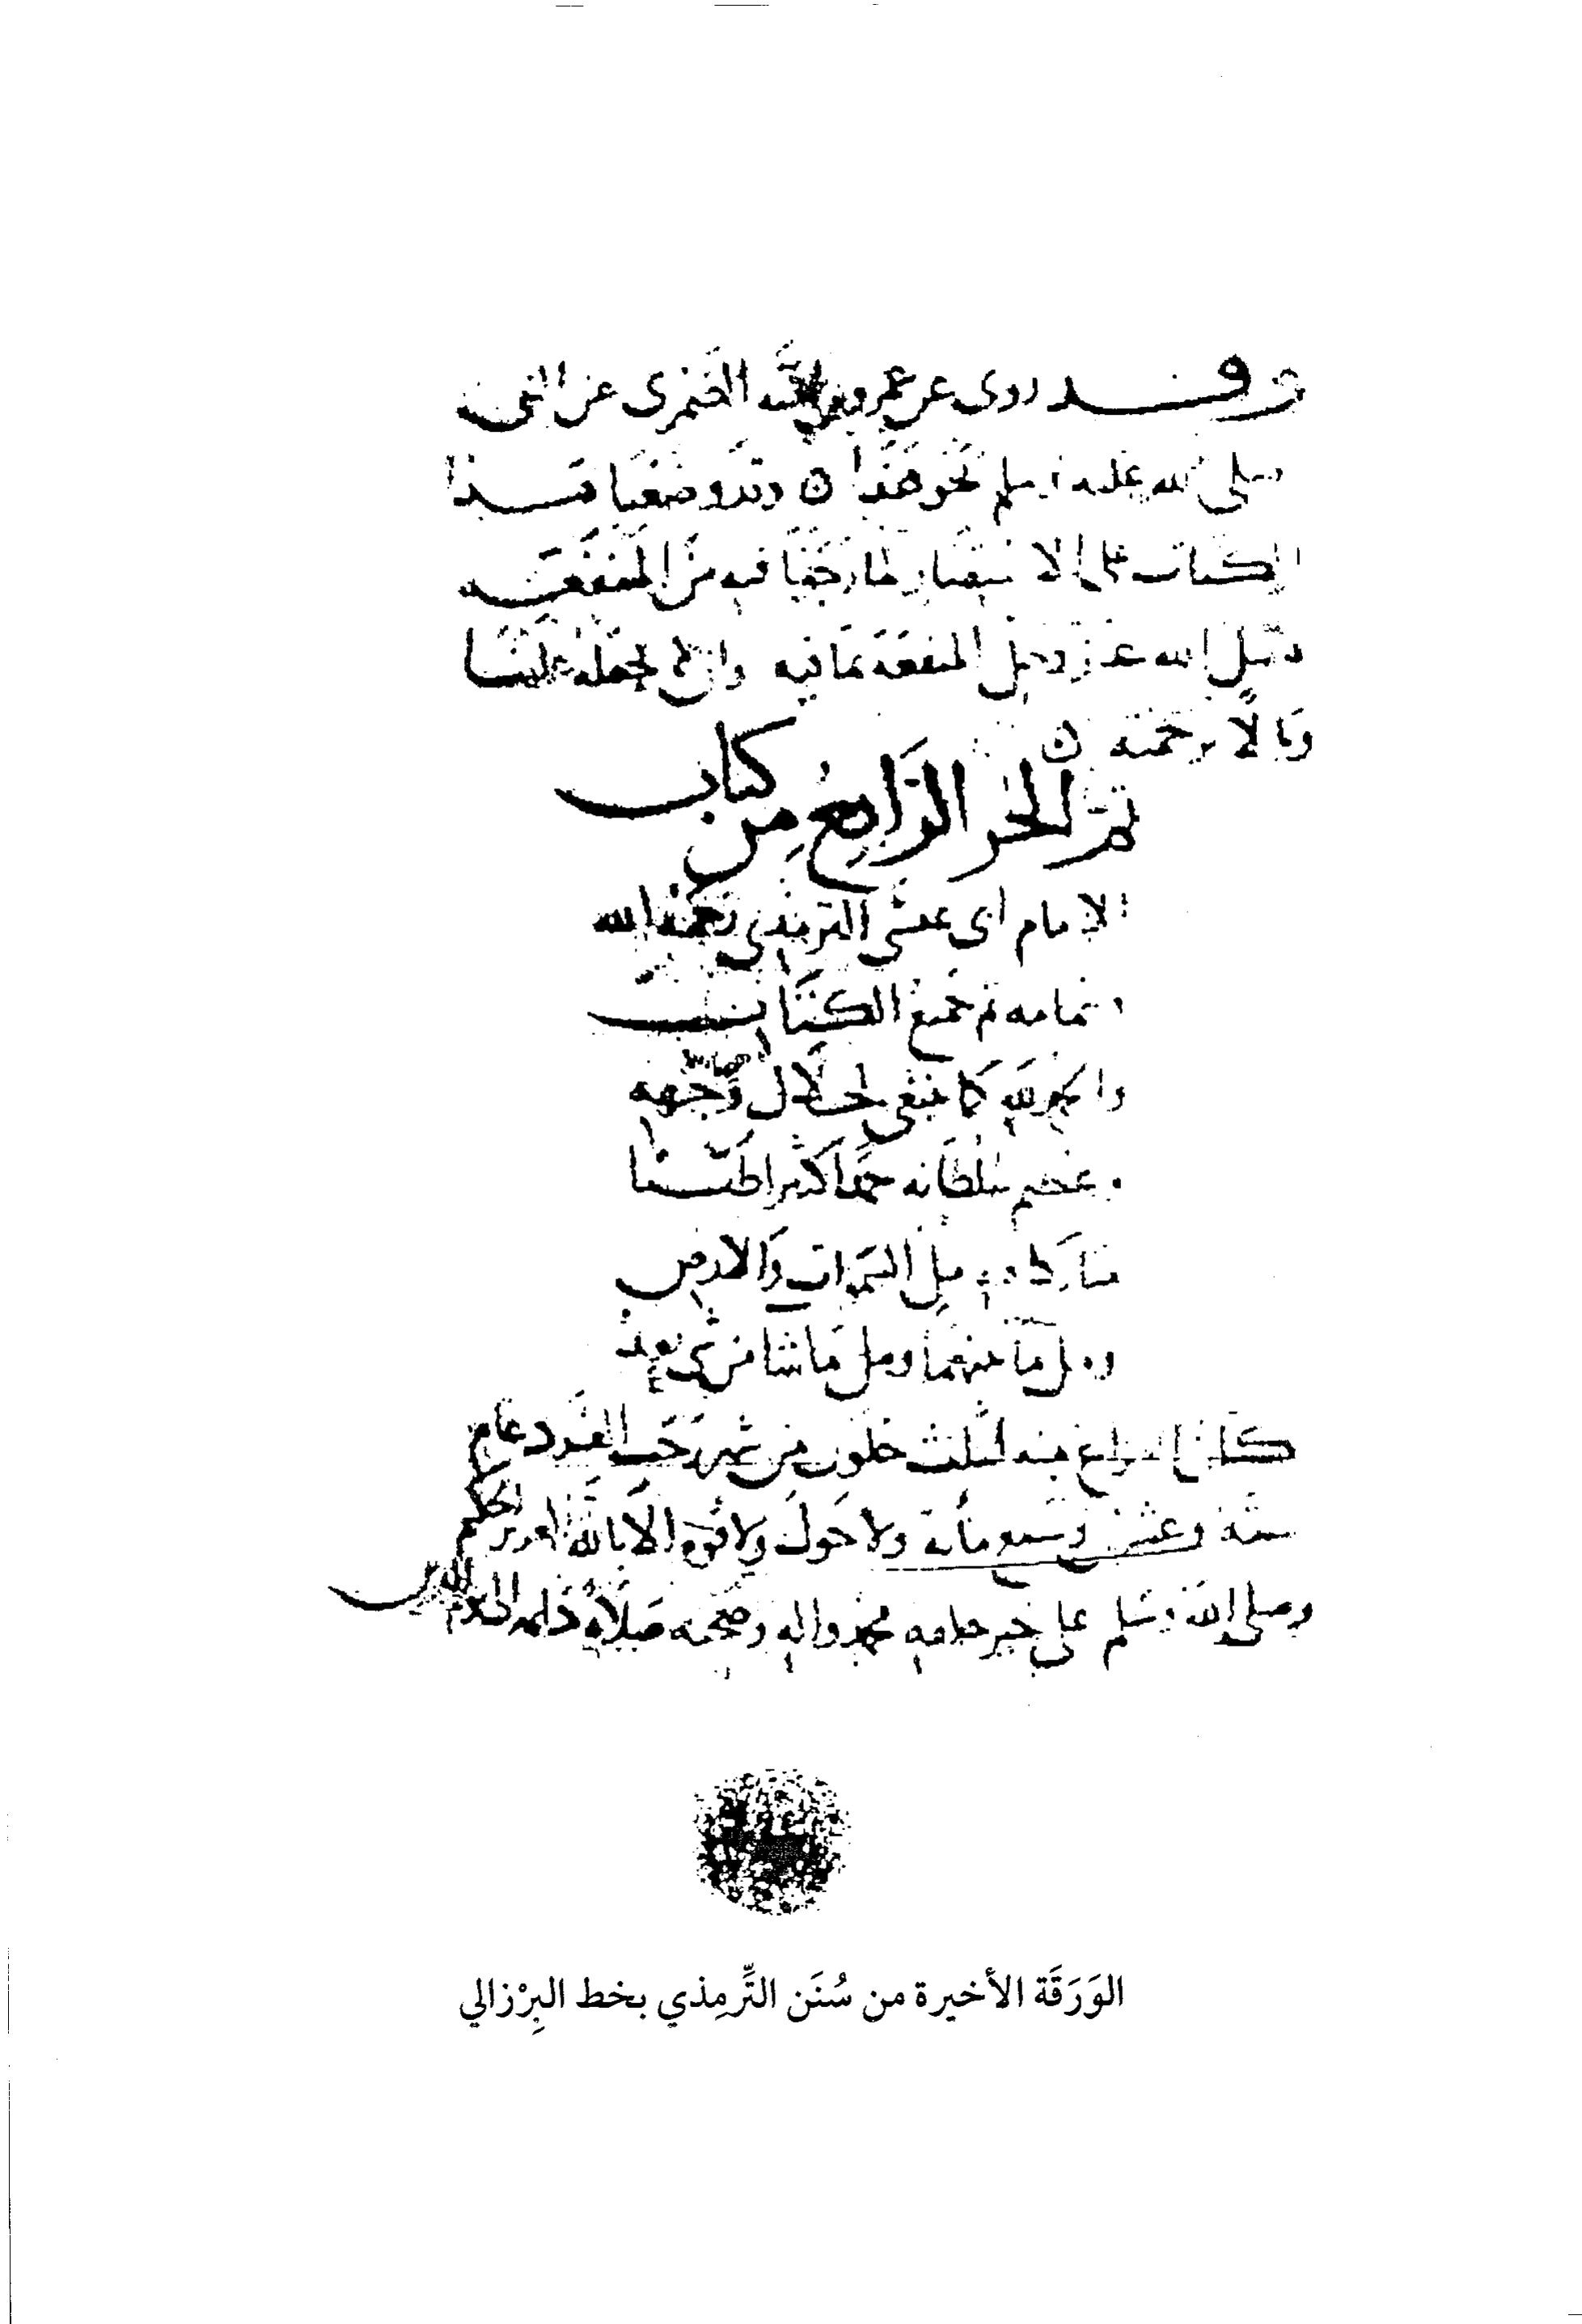 وقد روى عن عمرو بن امية الضمرى عن النبى
صلى الله عليه وسلم نحو هذا ن وقد وضعنا هذا
الكتاب على الاختصار لما رجونا فيه من المنفعة
نسل الله عز وجل المنفعة بما فيه وان لا يجعله علينا
وبالا برحمته ن
تم الجز الرابع من كتاب
الامام ابى عيسى الترمذى رحمه الله
وبتمامه تم جميع الكتاب
والحمد لله كما ينبغى لجلال وجهه
وعظيم سلطانه حمدا كثيرا طيبا
مباركا فيه مل السموات والارض
ومل ما بينهما ومل ما شا من شى بعد
كان الفراغ منه لثلث خلون من شهر رجب الفرد عام
وعشرين وسبع مائة ولا حول ولا قوة الا بالله العزيز الحكيم
وصلى الله وسلم على خير خلقه محمد واله وصحبه صلاة دائمة الى يوم الدين
الوَرَقَة الأخيرة من سُنَن التِّرمِذي بخط البِرْزالي